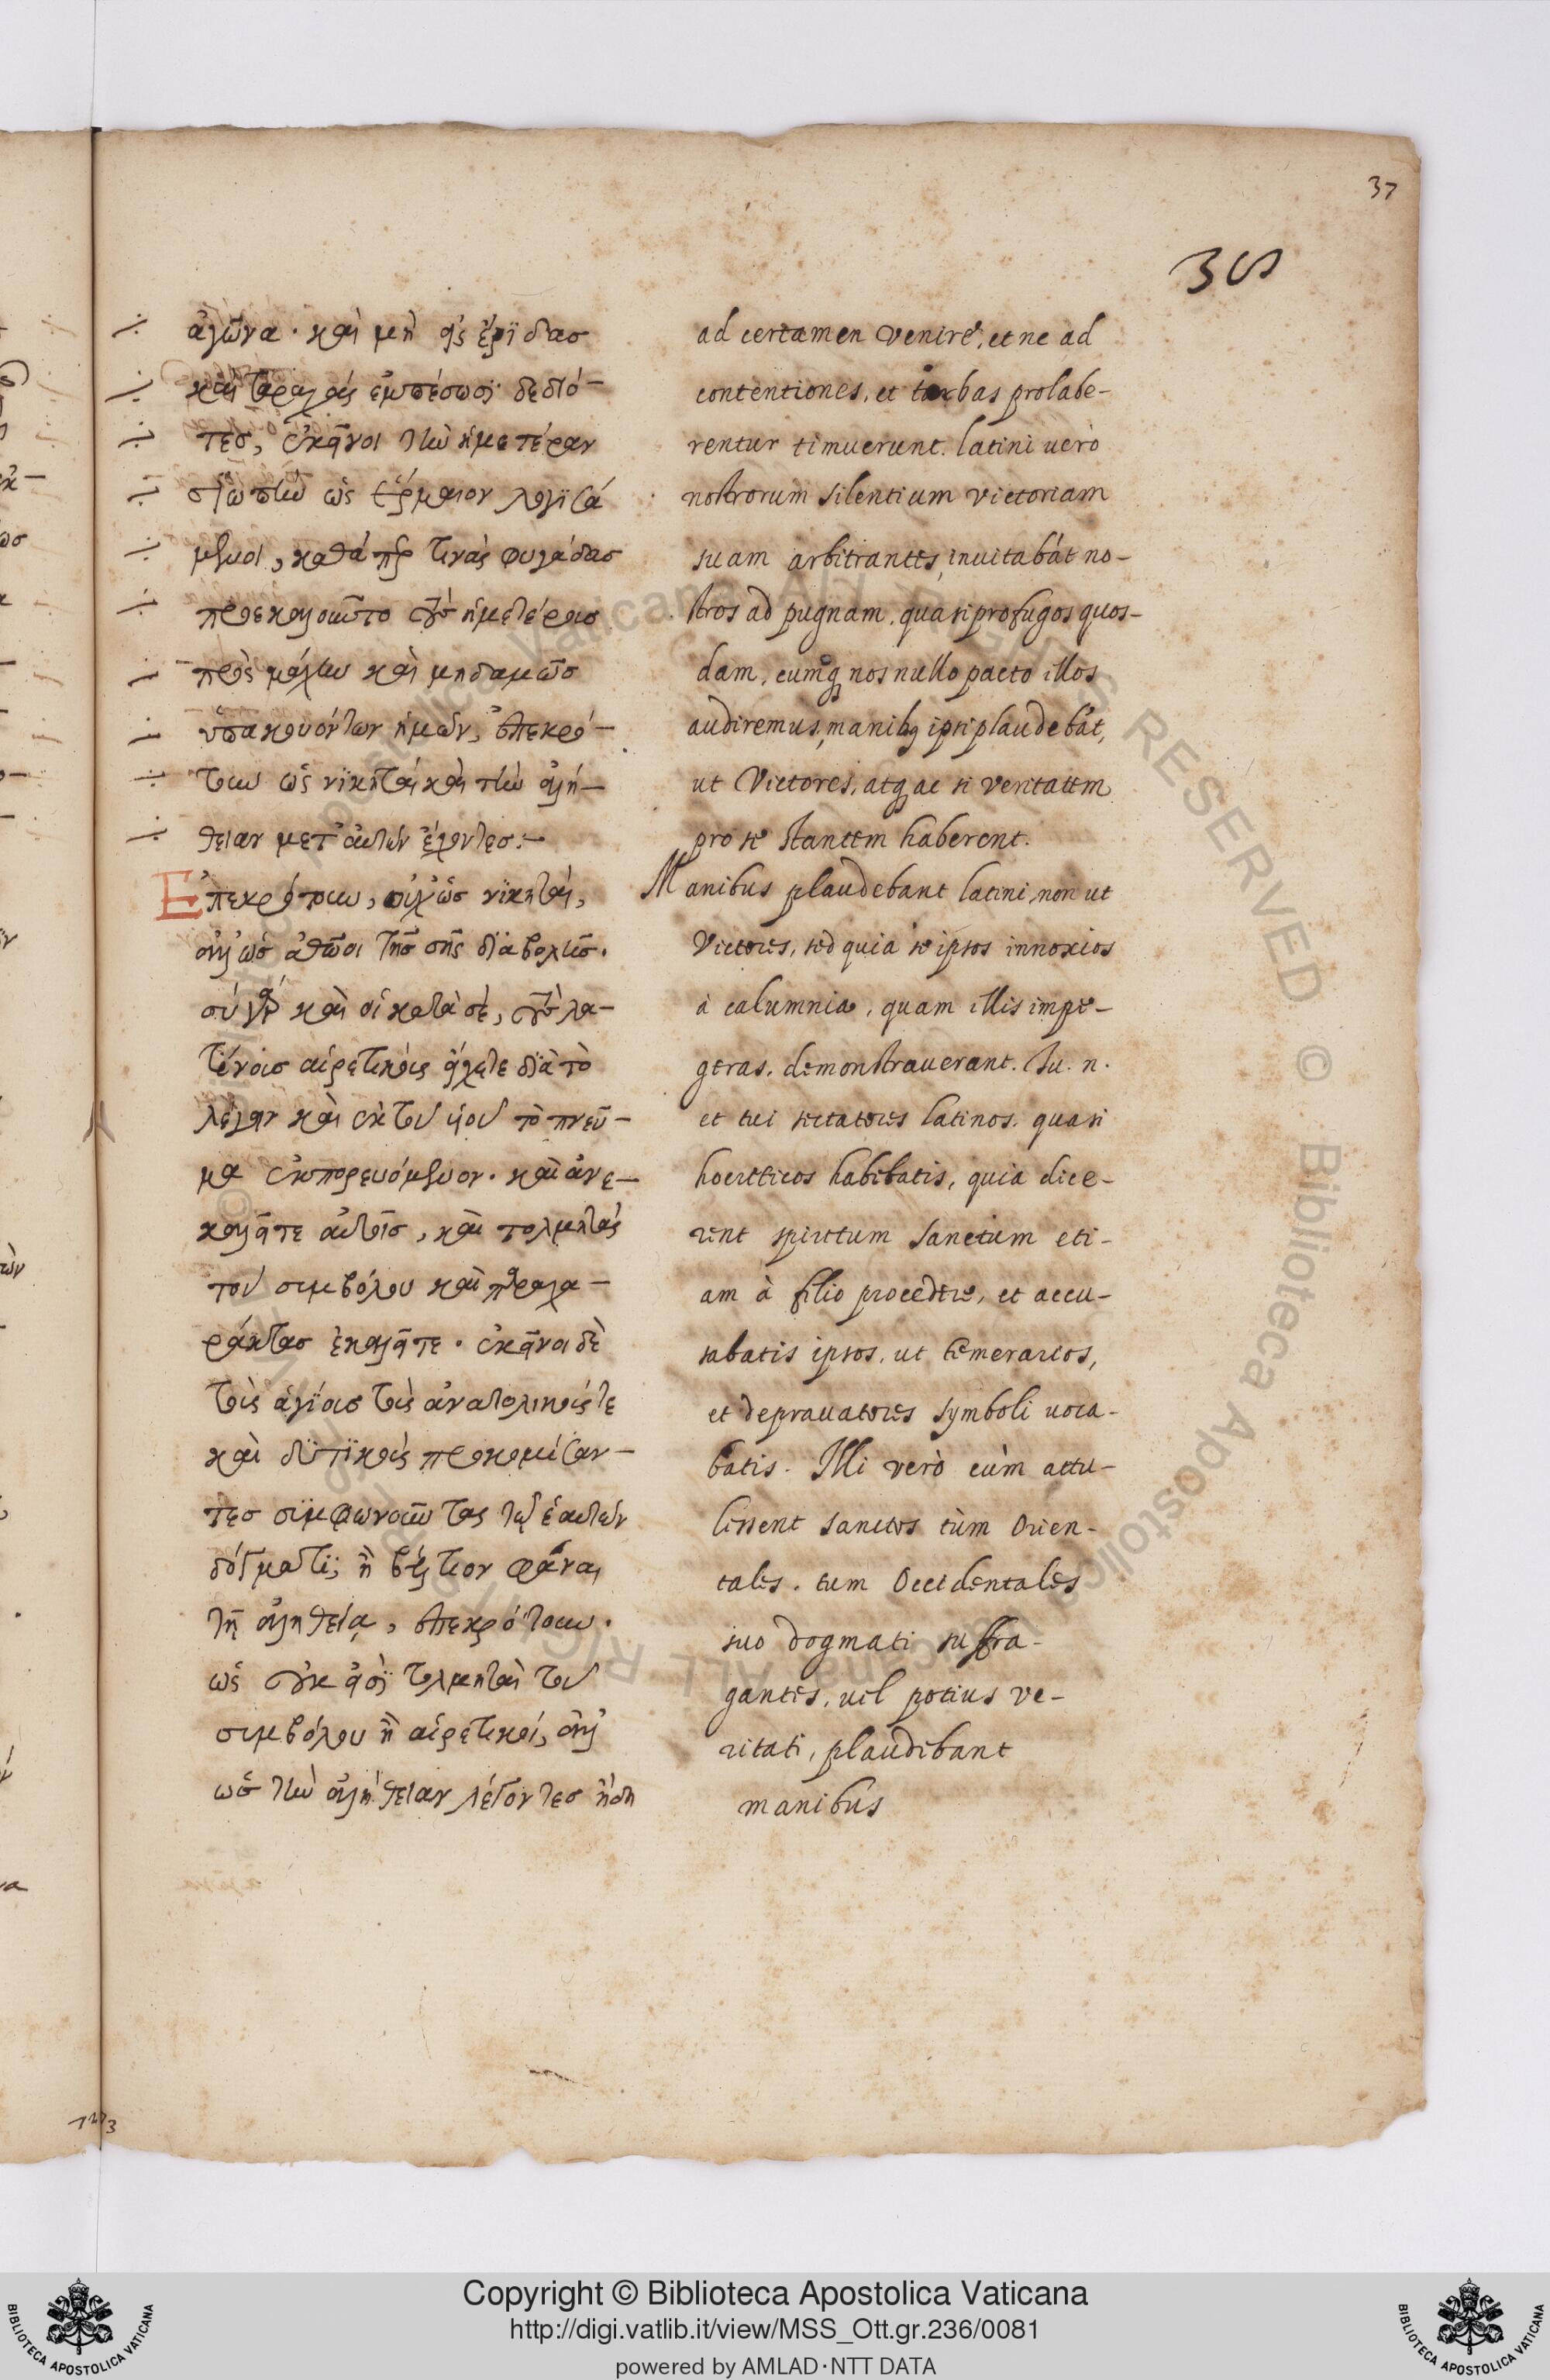 37
ἀγῶνα · καὶ μὴ εἰς ἔριδας
καὶ ταραχὰς ἐμπέσωσι δεδιό-
τες, ἐκεῖνοι τὴν ἡμετέραν
σιωπὴν ὡς ἕρμαιον λογιζό
μενοι, καθάπερ τινὰς φυγάδας
προεκαλοῦντο τοὺς ἡμετέρους
πρὸς μάχην καὶ μηδαμῶς
ὑπακουόντων ἡμῶν, ἐπεκρό-
τουν ὡς νικηταὶ καὶ τὴν ἀλή-
θειαν μετ' αὐτῶν ἔχοντες :-
Ἐπεκρότουν, οὐχ ὡς νικηταί,
ἀλλ' ὡς ἀθῶοι τῆς σῆς διαβολῆς.
σὺ γὰρ καὶ οἱ κατὰ σὲ, τοὺς λα-
τίνους αἱρετικοὺς εἴχετε διὰ τὸ
λέγειν καὶ ἐκ τοῦ υἱοῦ τὸ πνεῦ-
μα ἐκπορευόμενον · καὶ ἐνε-
καλεῖτε αὐτοῖς, καὶ τολμητὰς
τοῦ συμβόλου καὶ παραχα-
ράκτας ἐκαλεῖτε · ἐκεῖνοι δὲ
τοὺς ἁγίους τοὺς ἀνατολικούς τε
καὶ δυτικοὺς προκομίσαν-
τες συμφωνοῦντας τῷ ἑαυτῶν
δόγματι, ἢ βέλτιον φάναι
τῇ ἀληθείᾳ, ἐπεκρότουν.
ὡς οὐκ εἰσὶ τολμηταὶ τοῦ
συμβόλου ἢ αἱρετικοί, ἀλλ'
ὡς τὴν ἀλήθειαν λέγοντες ἤδη
ad certamen venire, et ne ad
contentiones, et turbas prolabe-
rentur timuerunt. latini uerò
nostrorum silentium victoriam
suam arbitrantes, inuitabāt no-
stros ad pugnam, quasi profugos quos-
dam, cumq; nos nullo pacto illos
audiremus, manibq ipsi plaudebāt,
ut Victores, atq; ac si veritatem
pro se stantem haberent.
Manibus plaudebant latini, non ut
Victores, sed quia se ipsos innoxios
à calumnia, quam illis impe-
geras, demonstrauerant. Tu. n.
et tui sectatores latinos, quasi
hoereticos habebatis, quia dice-
rent spiritum sanctum eti-
am à filio procedere, et accu-
sabatis ipsos, ut temerarios,
et deprauatores symboli uoca-
batis. Illi verò cùm attu-
lissent sanctos tùm Orien-
tales, tum Occidentales
suo dogmati suffra-
gantes, uel potius ve-
ritati, plaudebant
manibus
Copyright © Biblioteca Apostolica Vaticana
http://digi.vatlib.it/view/MSS_Ott.gr.236/0081
powered by AMLAD·NTT DATA